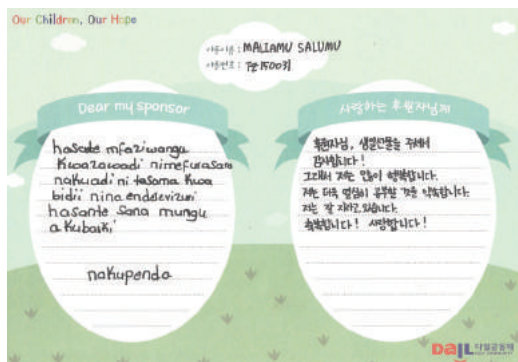 Our Children, Our Hope
아동이름 : MALIAMU SALUMU
아동번호 :
Dear my sponsor
hasante mfaziwangu
Kwazawadi nimefurasana
nakuadi ni tasoma kwa
bidii nina endelevizuri
hasante sana mungu
akubariki
nakupenda
사랑하는 후원자님께
후원자님, 생일선물을 주셔서
감사합니다!
그래서 저는 많이 행복합니다.
저는 더욱 열심히 공부할 것을 약속합니다.
저는 잘 지내고 있습니다.
축복합니다! 사랑합니다!
DaiL 다일공동체